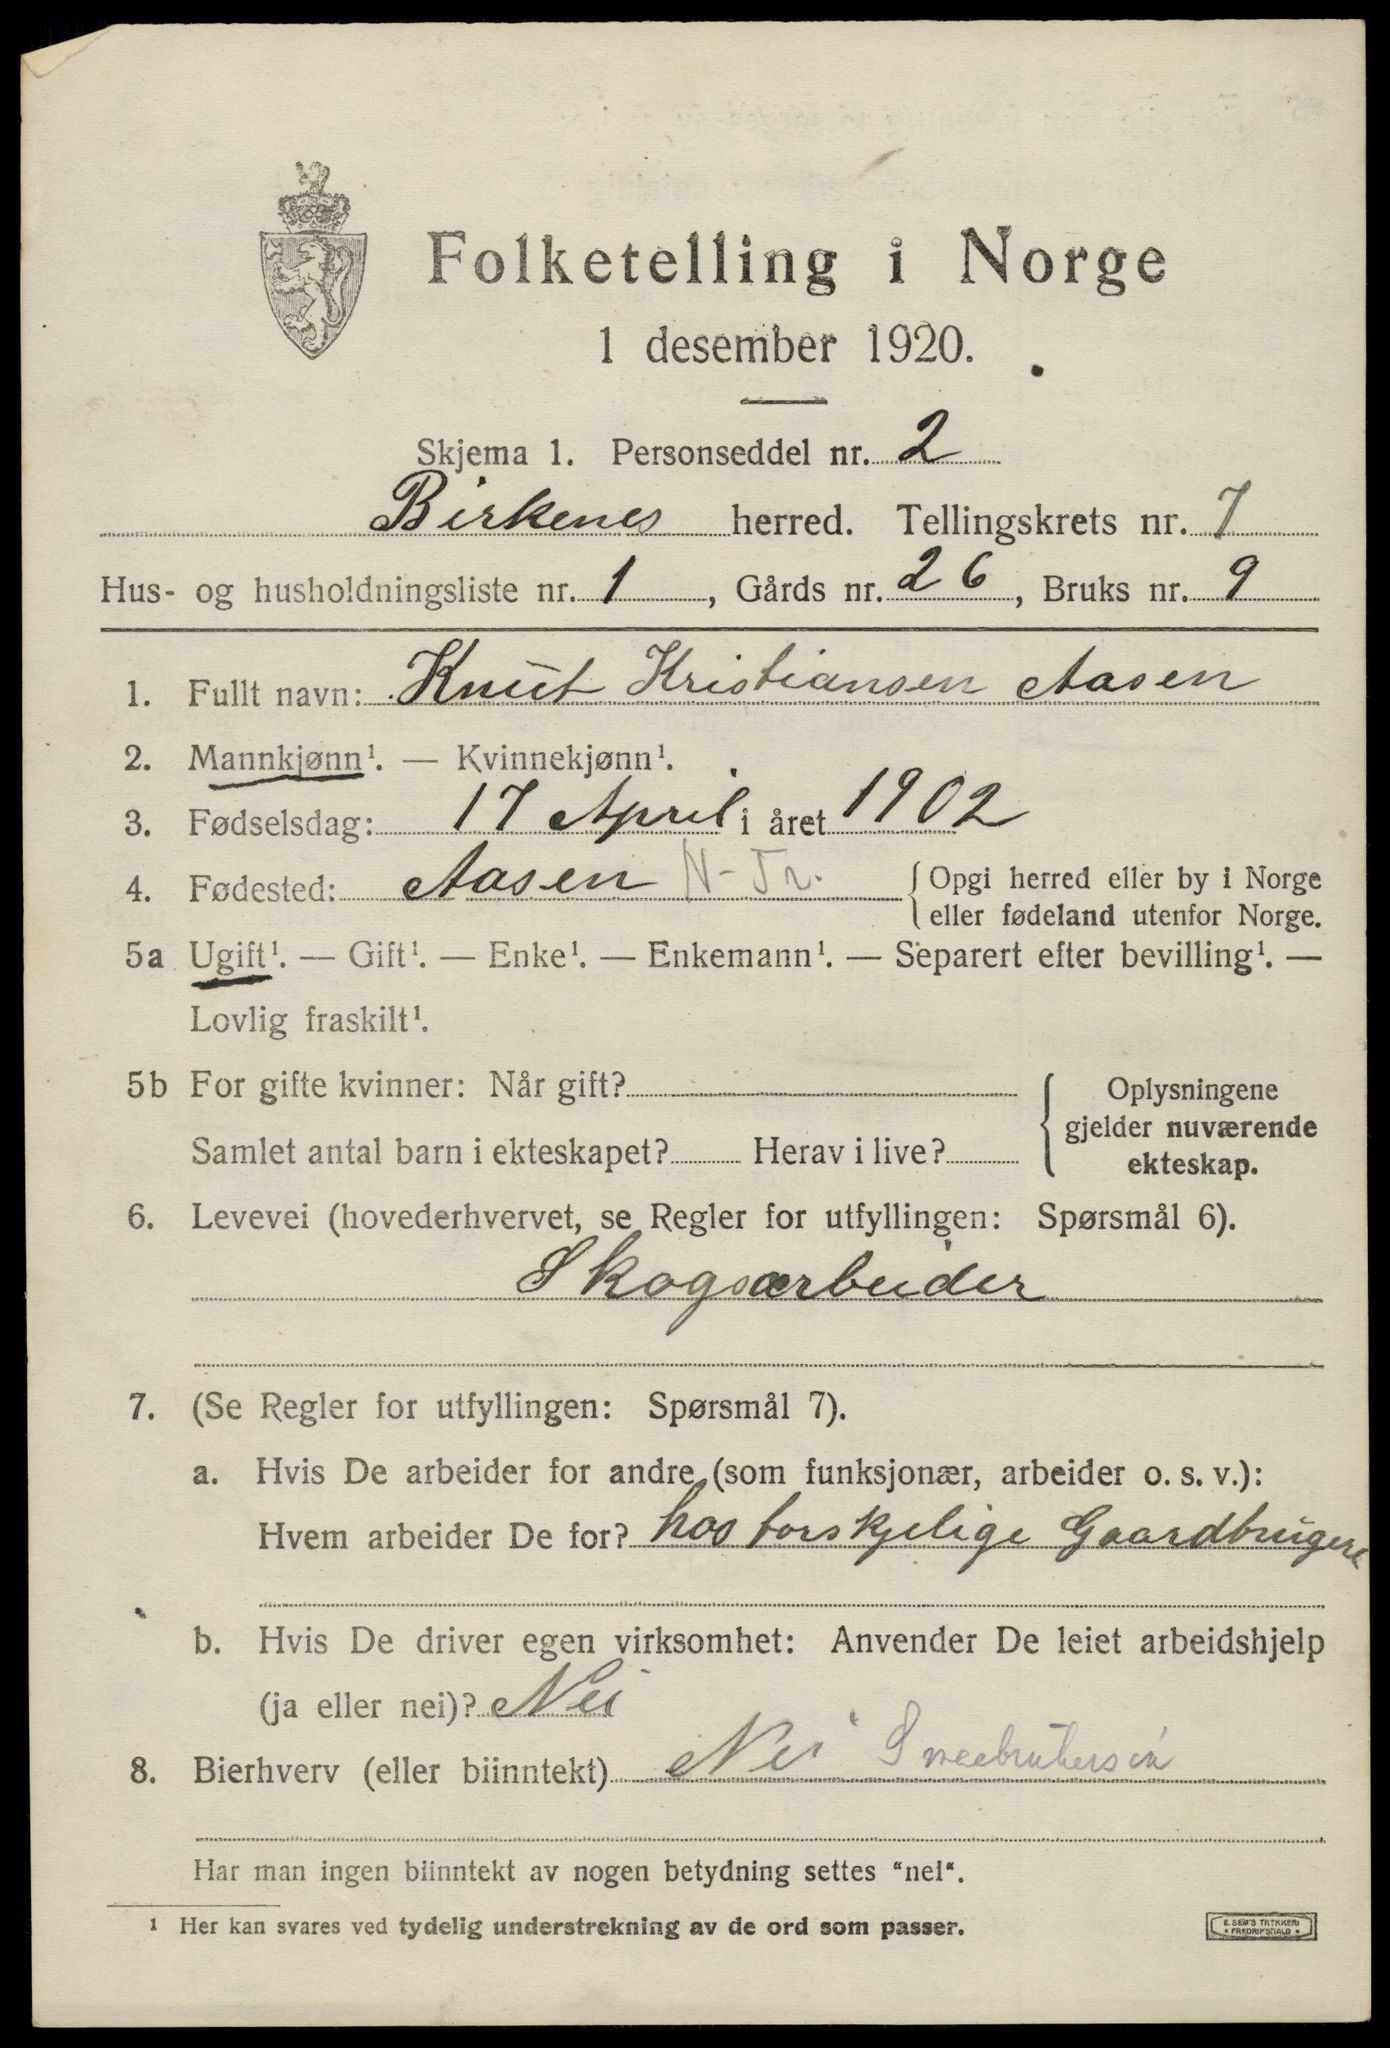 Folketelling i Norge
1 desember 1920.
Skjema 1. Personseddel nr. 2
Birkenes herred. Tellingskrets nr. 7
Hus- og husholdningsliste nr. 1, Gårds nr. 26, Bruks nr. 9
1. Fullt navn: Knut Kristiansen Aasen
2. Mannkjønn¹. — Kvinnekjønn¹.
3. Fødselsdag: 17 April i året 1902
4. Fødested: Aasen N-Tr. { Opgi herred eller by i Norge
eller fødeland utenfor Norge.
5a Ugift¹. — Gift¹. — Enke¹. — Enkemann¹. — Separert efter bevilling¹. —
Lovlig fraskilt¹.
5b For gifte kvinner: Når gift?
Samlet antal barn i ekteskapet? Herav i live?
{ Oplysningene
gjelder nuværende
ekteskap.
6. Levevei (hovederhvervet, se Regler for utfyllingen: Spørsmål 6).
Skogsarbeider
7. (Se Regler for utfyllingen: Spørsmål 7).
a. Hvis De arbeider for andre (som funksjonær, arbeider o. s. v.):
Hvem arbeider De for? hos forskjelige Gaardbrugere
b. Hvis De driver egen virksomhet: Anvender De leiet arbeidshjelp
(ja eller nei)? Nei
8. Bierhverv (eller biinntekt) Nei
Har man ingen biinntekt av nogen betydning settes "nei".
1 Her kan svares ved tydelig understrekning av de ord som passer.
E. SEM'S TRYKKERI
* FREDRIKSHALD *